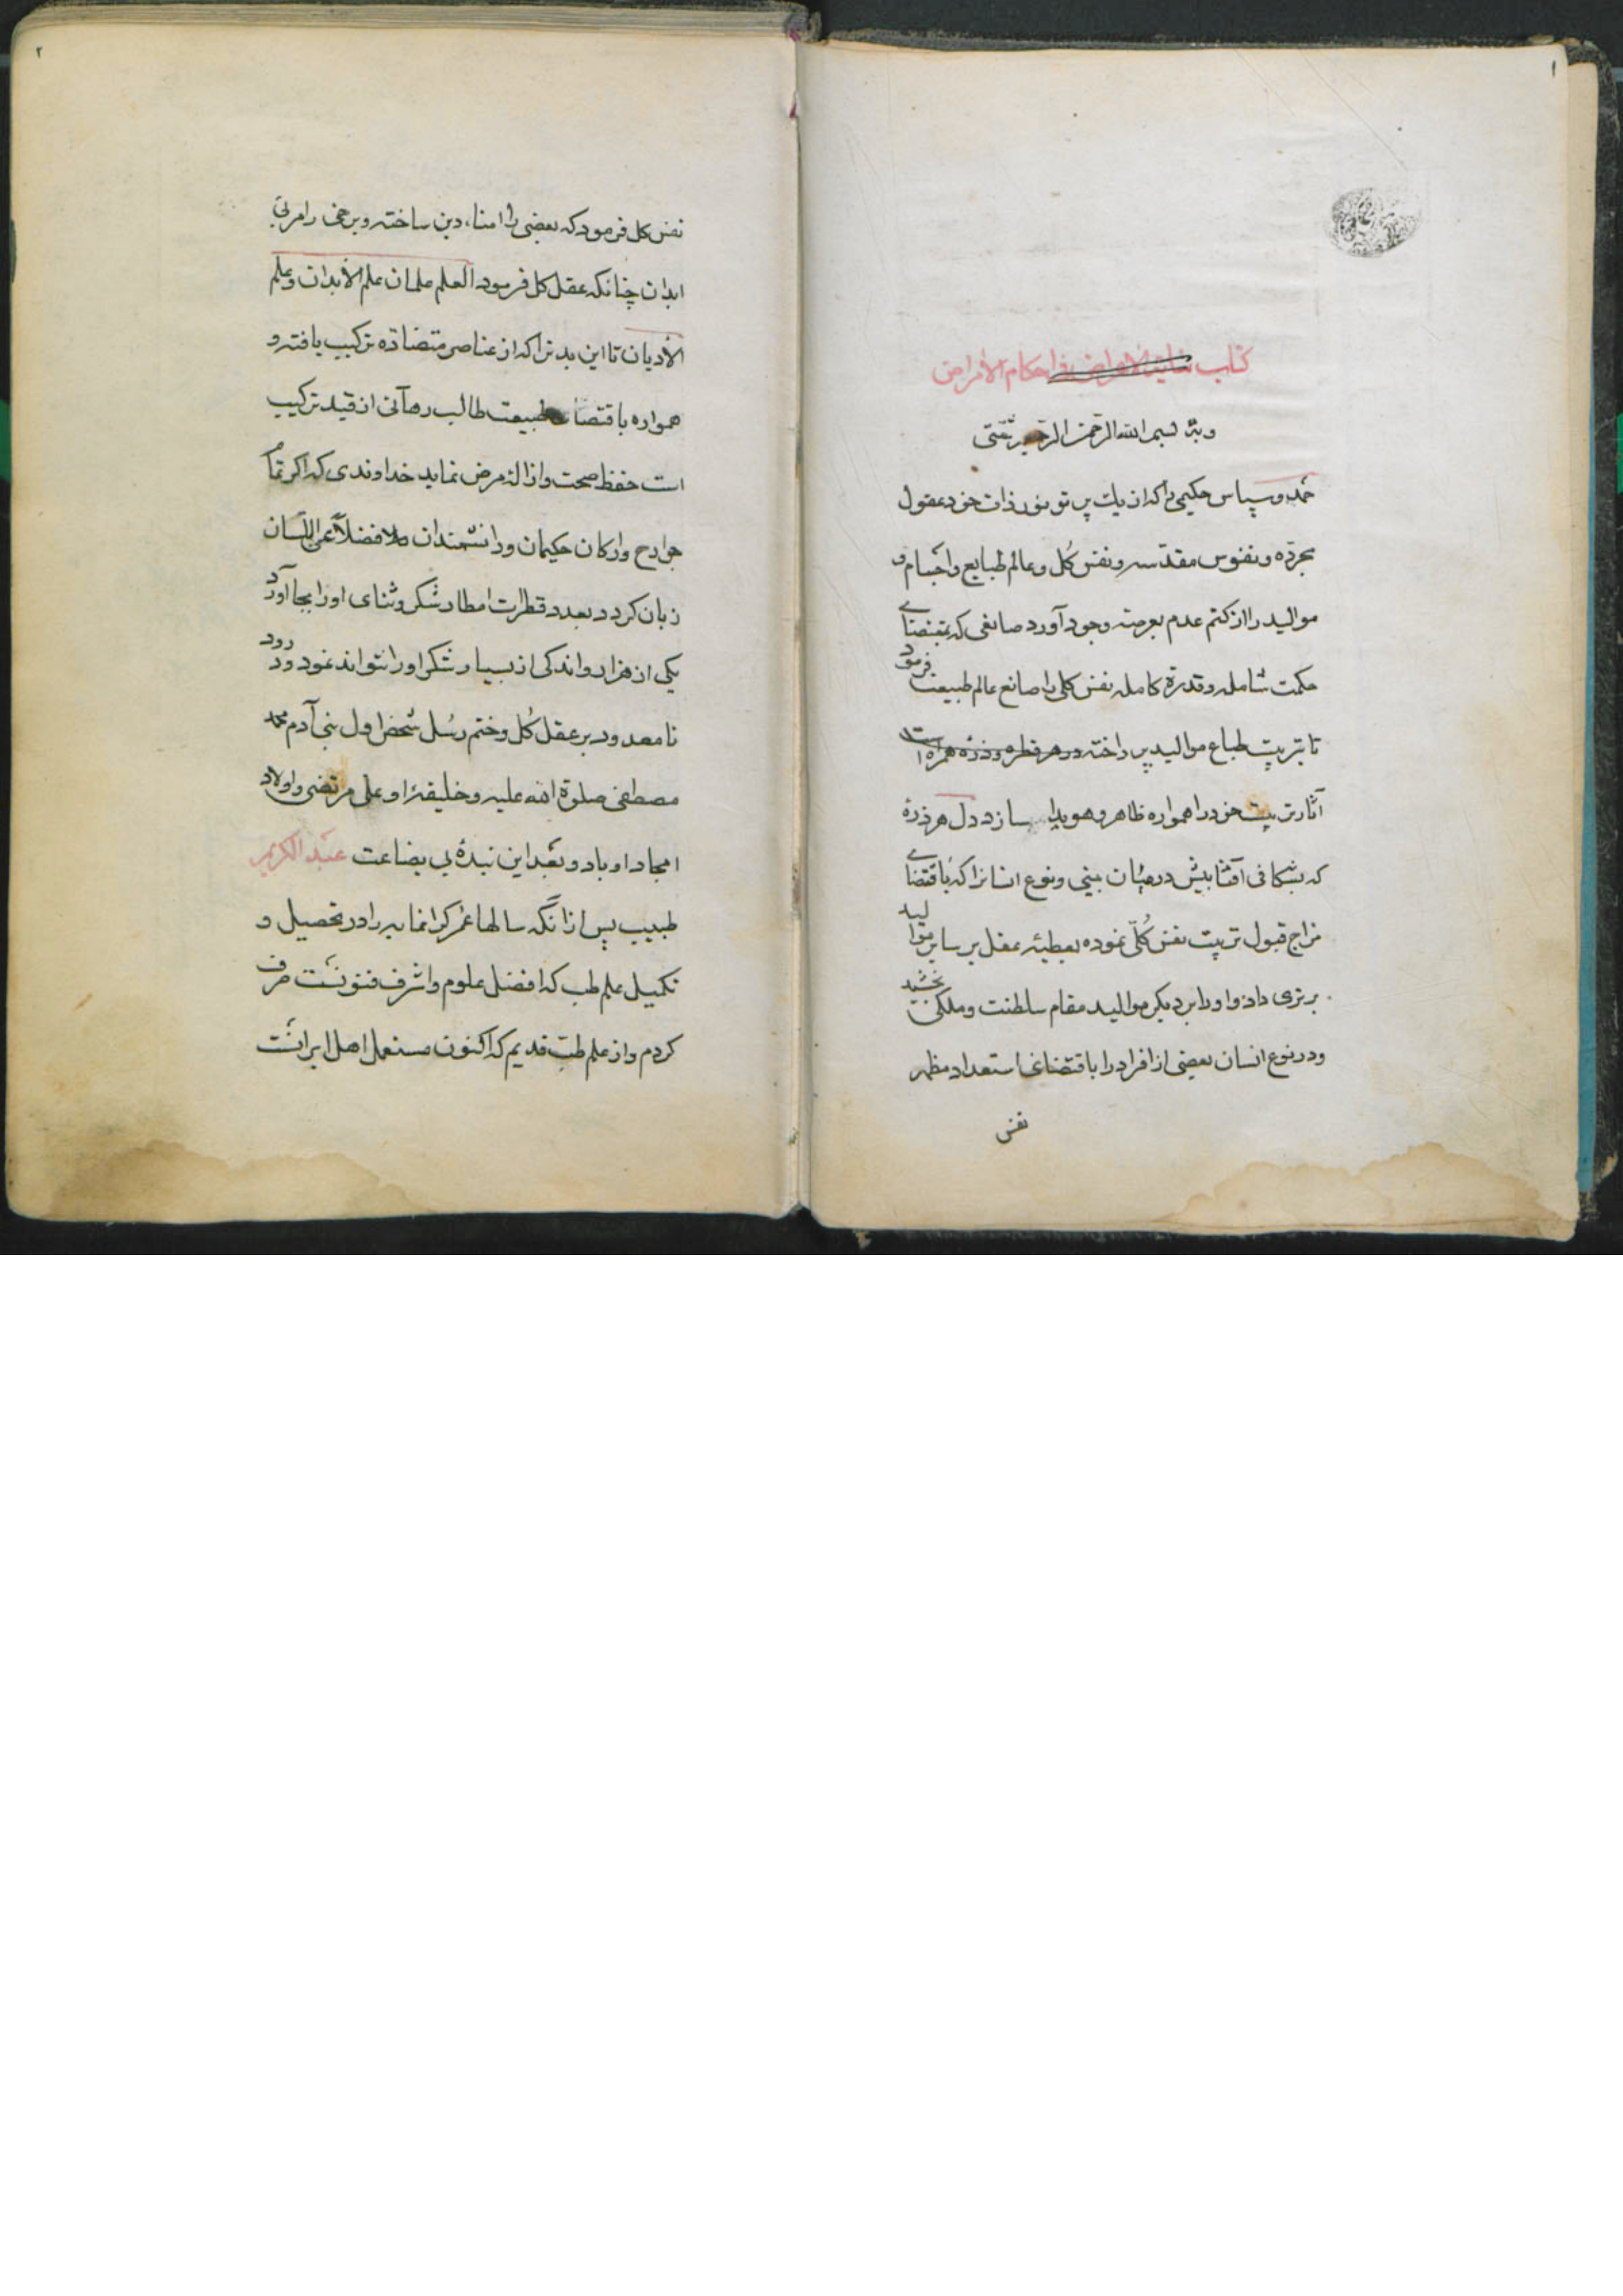 ۱
کتاب نهایة الاغراض فی احکام الامراض
وبه بسم الله الرحمن الرحیم ثقتی
حمد و سپاس حکیمی را که از یک پرتو نور ذات خود عقول
مجرده و نفوس مقدسه و نفس کل و عالم طبایع و اجسام و
موالید را از کتم عدم بعرصه وجود آورد صانعی که بمقتضای
حکمت شامله و قدرة کامله نفس کلی را صانع عالم طبیعت فرمود
تا بتربیت طباع موالید پرداخته در هر قطره و ذره همراه است
آثار تربیت خود را همواره ظاهر و هویدا سازد دل هر ذرهٔ
که بشکافی آفتابیش در میان بینی و نوع انسانرا که باقتضای
مزاج قبول تربیت نفس کُلّی نموده بعطیهٔ عقل بر سایر موالید
برتری داد و او را بر دیگر موالید مقام سلطنت و ملکی بخشید
و در نوع انسان بعضی از افراد را باقتضای استعداد مظهر
نفس
۲
نفس کل فرمود که بعضی را امناء دین ساخته و برخی را مربی
ابدان چنانکه عقل کل فرمود العلم علمان علم الأبدان و علم
الأدیان تا این بدنرا که از عناصر متضاده ترکیب یافته و
همواره باقتضای طبیعت طالب رهائی از قید ترکیب
است حفظ صحت و ازالهٔ مرض نماید خداوندی که اگر تمام
جوارح و ارکان حکیمان و دانشمندان فضلاً عن اللسان
زبان گردد بعدد قطرات امطار شکر و ثنای او را بجا آورد
یکی از هزار و اندکی از بسیار شکر او را نتواند نمود درود
نامعدود بر عقل کُل و ختم رسُل شخص اول بنی آدم محمد
مصطفی صلوة الله علیه و خلیفهٔ او علی مرتضی و اولاد
امجاد او باد و بعد این بندهٔ بی بضاعت عبد الکریم
طبیب پس از آنکه سالها عُمر گرانمایه را در تحصیل و
تکمیل علم طب که افضل علوم و اشرف فنونست صرف
کردم و از علم طب قدیم که اکنون مستعمل اهل ایرانست